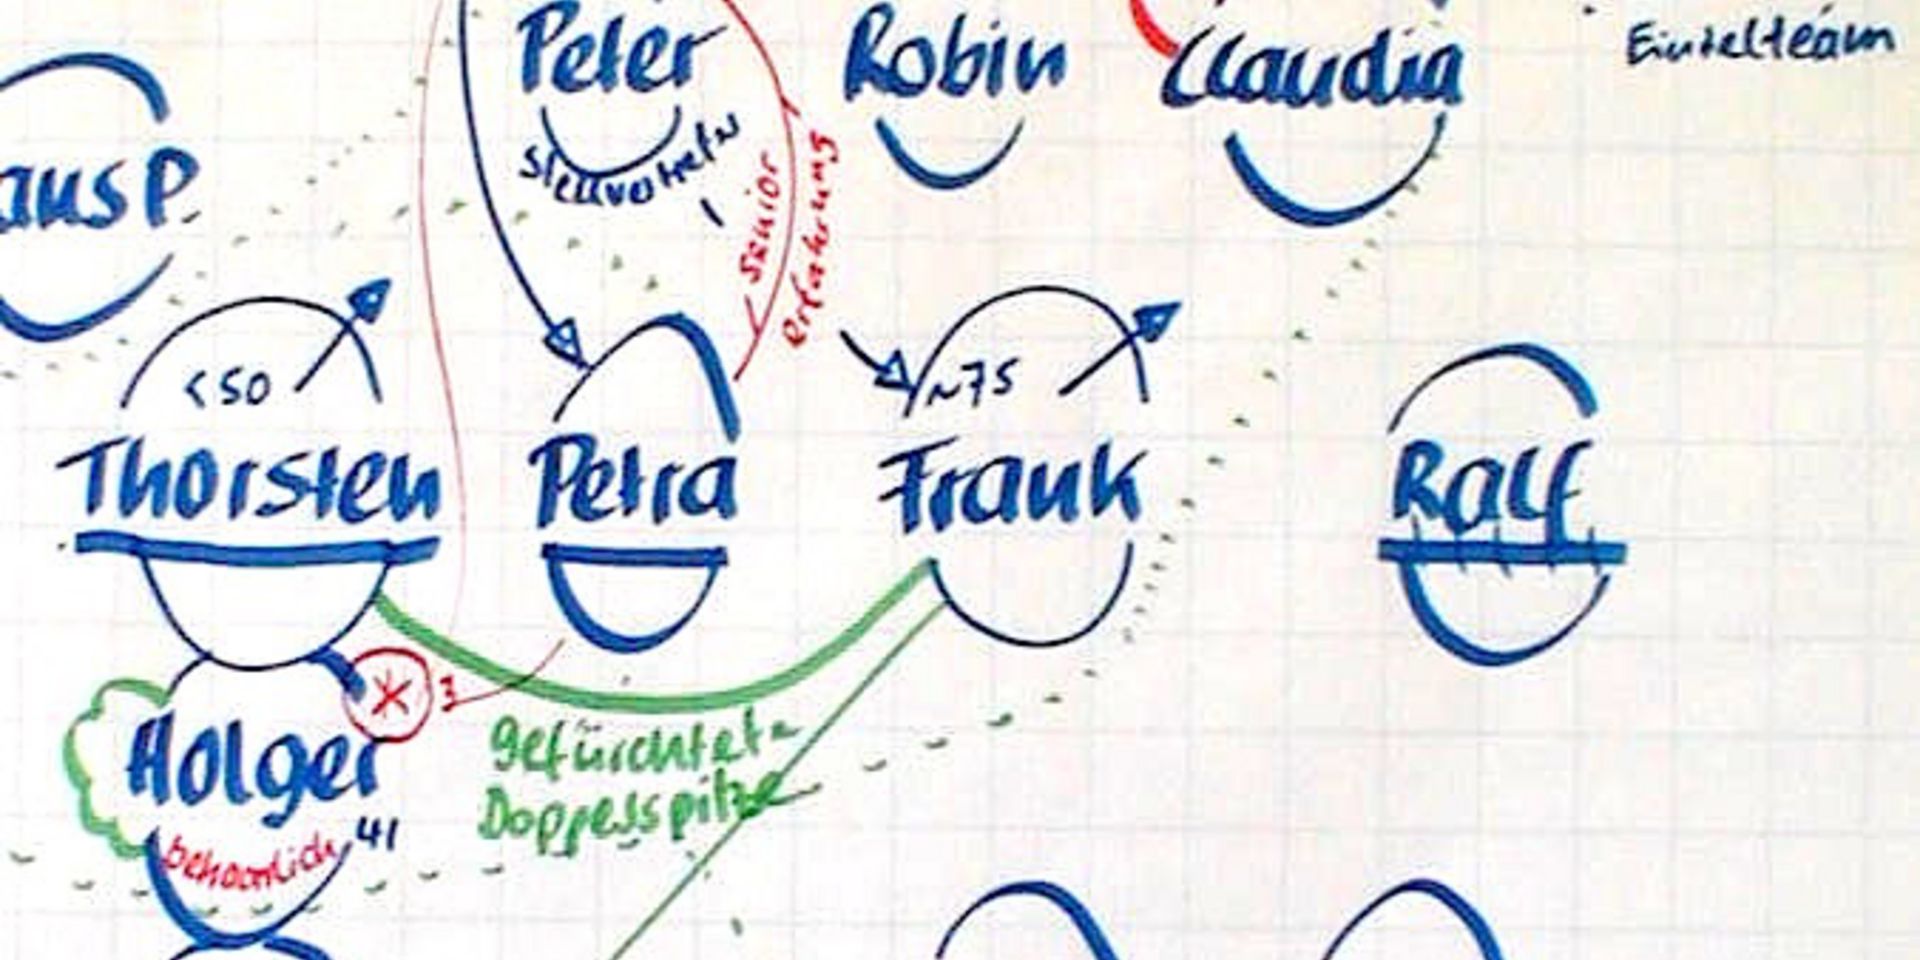 Peter
Robin
Claudia
Einzelteam
Stellvertreter
aus P.
Senior
erfahrung
<50
~75
Thorsten
Petra
Frank
Ralf
3
Holger
gefürchtete
Doppelspitze
beharrlich
41